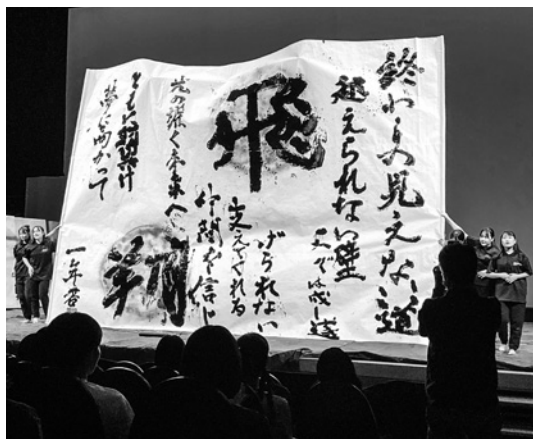 終わりの見えない道
越えられない壁
一人では成し遂
げられない
支えてくれる
仲間を信じ
飛翔
光の輝く未来へ
ともに
夢に向かって
一年